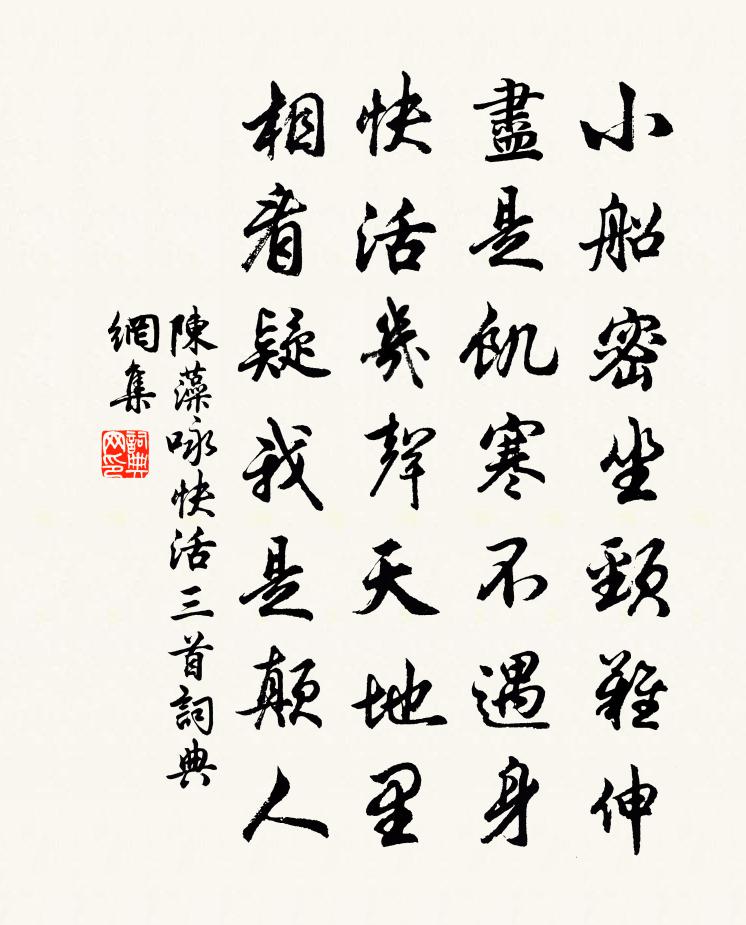 小船密坐頸難伸
盡是飢寒不遇身
快活幾聲天地里
相看疑我是顛人
陳藻咏快活三首詞典
網集
詞典網印